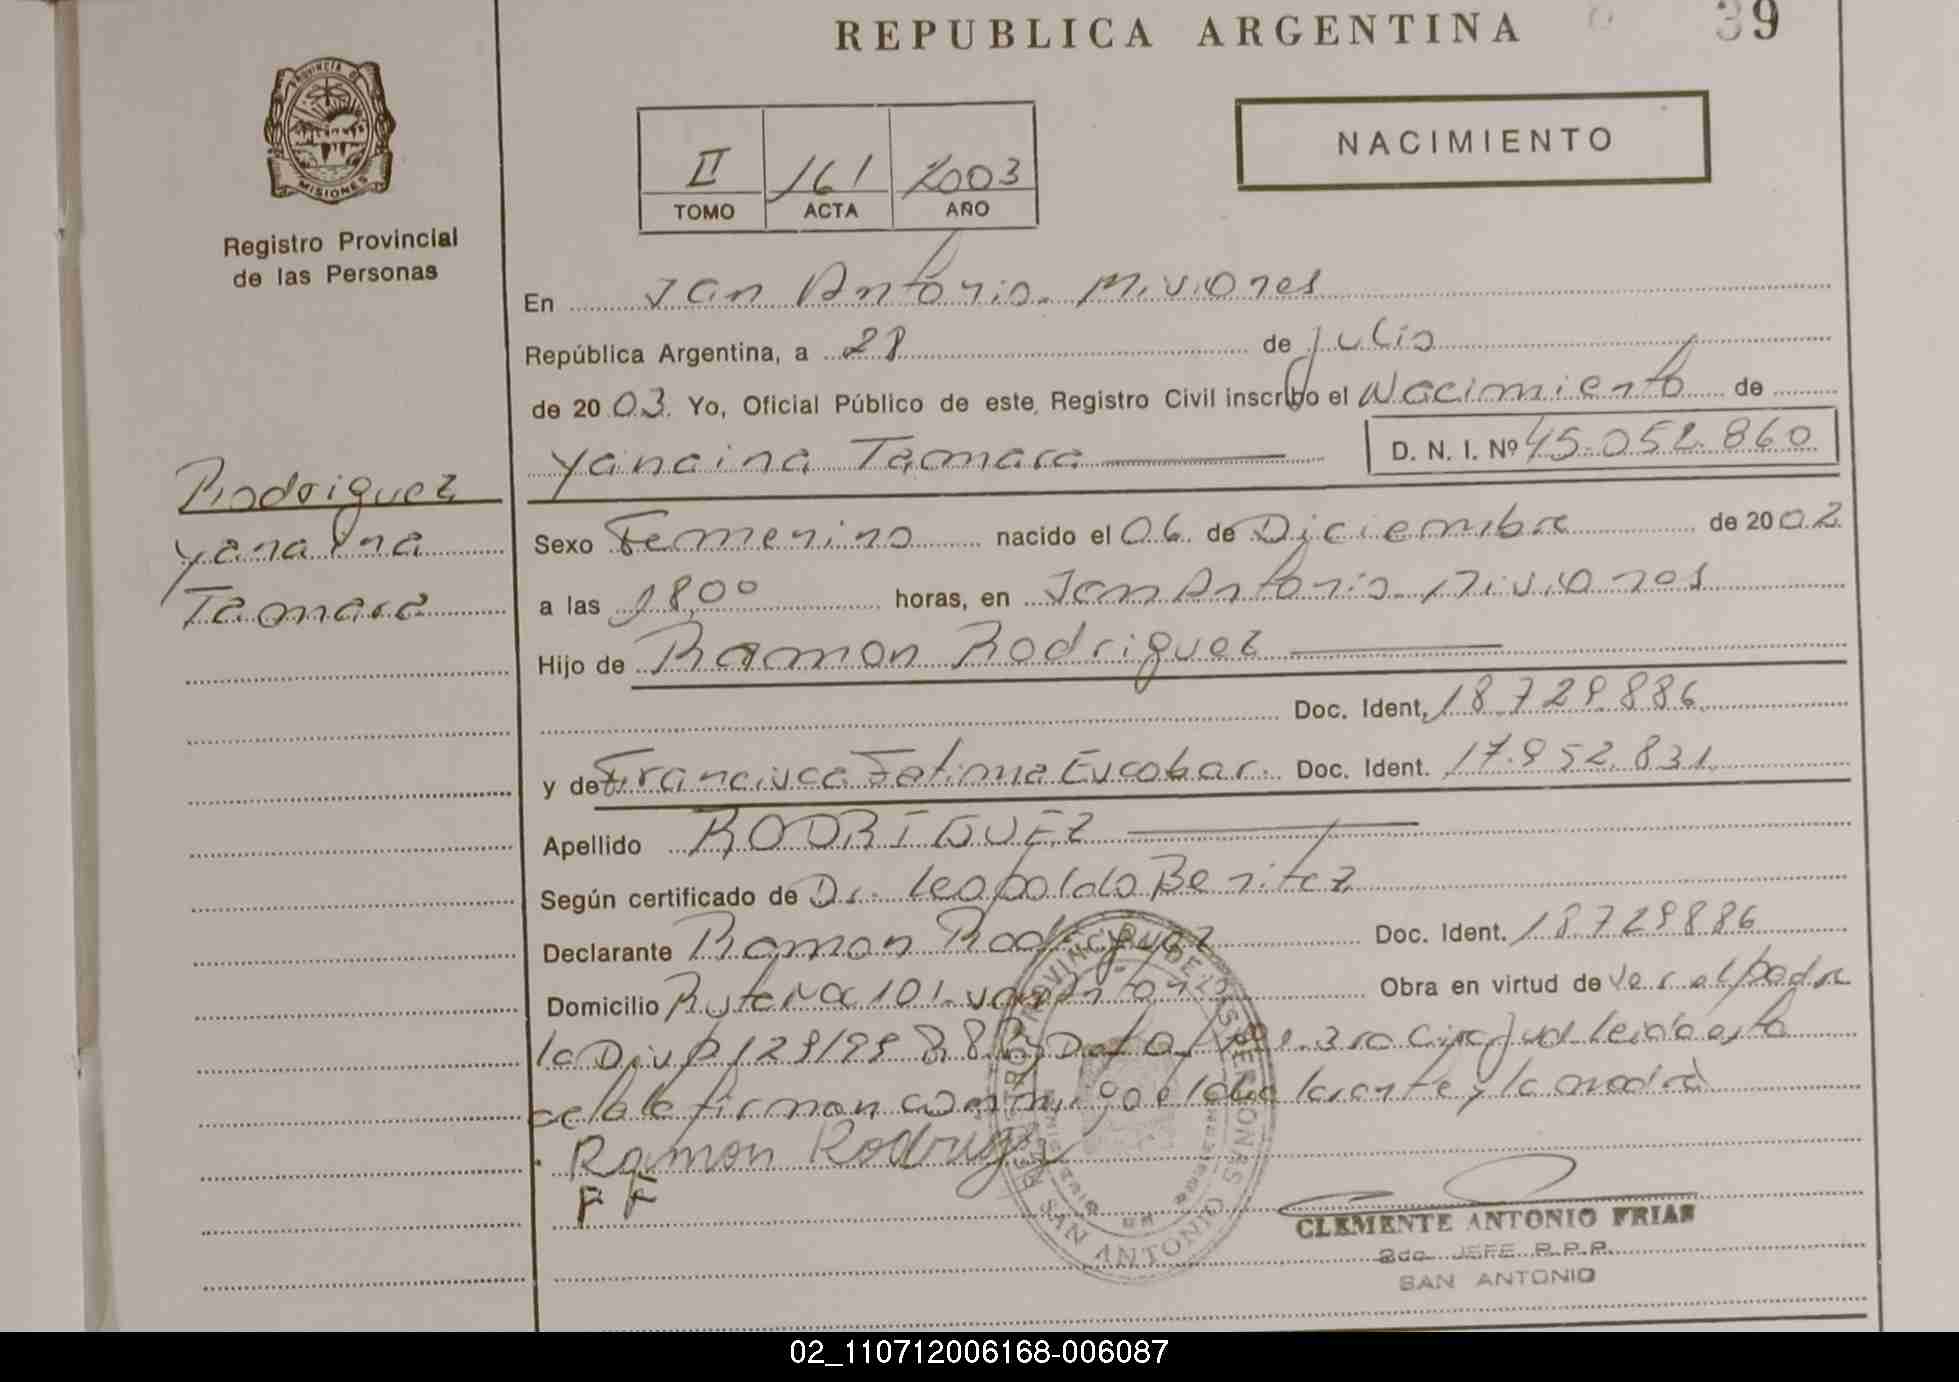 REPUBLICA ARGENTINA
39
PROVINCIA DE
MISIONES
Registro Provincial
de las Personas
II 161 2003
TOMO ACTA AÑO
NACIMIENTO
En San Antonio. Misiones
República Argentina, a 28 de Julio
de 2003. Yo, Oficial Público de este Registro Civil inscribo el Nacimiento de
Yanaina Tamara D. N. I. Nº 45.052.860
Rodriguez
Yanaina
Tamara
Sexo Femenino nacido el 06 de Diciembre de 2002
a las 18,00 horas, en San Antonio. Misiones
Hijo de Ramon Rodriguez
Doc. Ident. 18.729.886
y de Francisca Fatima Escobar. Doc. Ident. 17.952.831
Apellido RODRIGUEZ
Según certificado de Dr. Leopoldo Benitez
Declarante Ramon Rodriguez Doc. Ident. 18729886
Domicilio Ruta Na 101 San Anton Obra en virtud de ser el padre
la Disp 129/99 leida esta
firman conmigo el declarante y la madre
Ramon Rodriguez
F F
SAN ANTONIO
CLEMENTE ANTONIO FRIAS
2do. JEFE R.P.P.
SAN ANTONIO
02_110712006168-006087